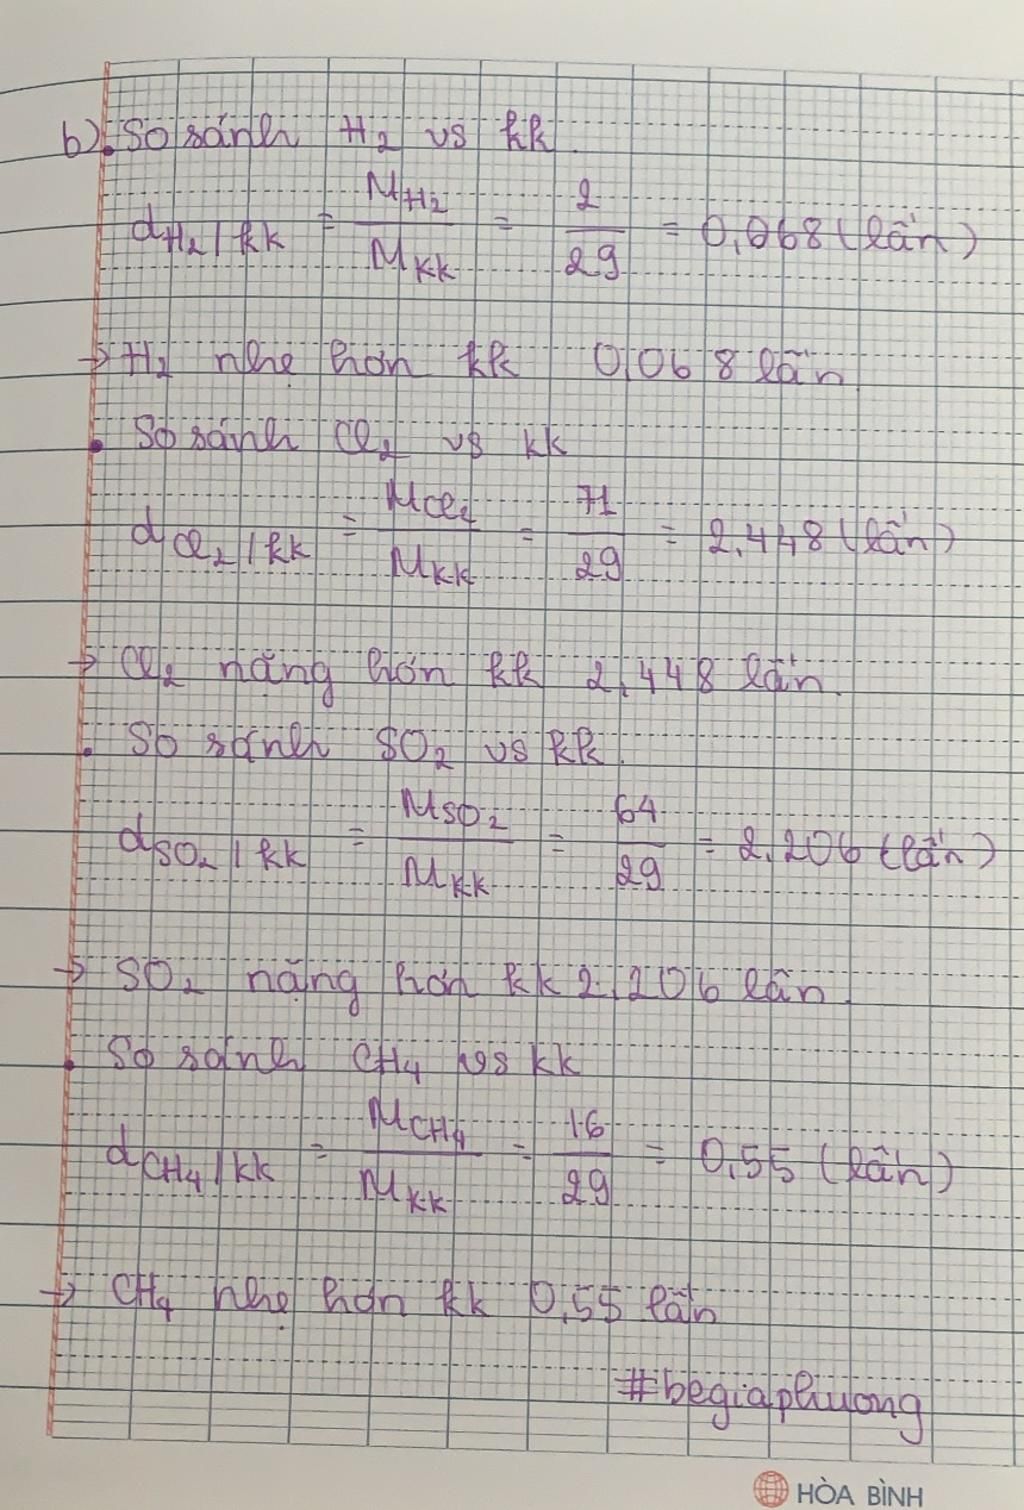 b). So sánh H₂ vs kk
d H₂/kk = M H₂ / M KK = 2/29 = 0,068 (lần)
→ H₂ nhẹ hơn kk 0,068 lần
. So sánh Cl₂ vs kk
d Cl₂/kk = M Cl₂ / M KK = 71/29 = 2,448 (lần)
→ Cl₂ nặng hơn kk 2,448 lần.
. So sánh SO₂ vs kk.
d SO₂/kk = M SO₂ / M KK = 64/29 = 2,206 (lần)
→ SO₂ nặng hơn kk 2,206 lần.
. So sánh CH₄ vs kk
d CH₄/kk = M CH₄ / M KK = 16/29 = 0,55 (lần)
→ CH₄ nhẹ hơn kk 0,55 lần
#begiaphuong
HÒA BÌNH